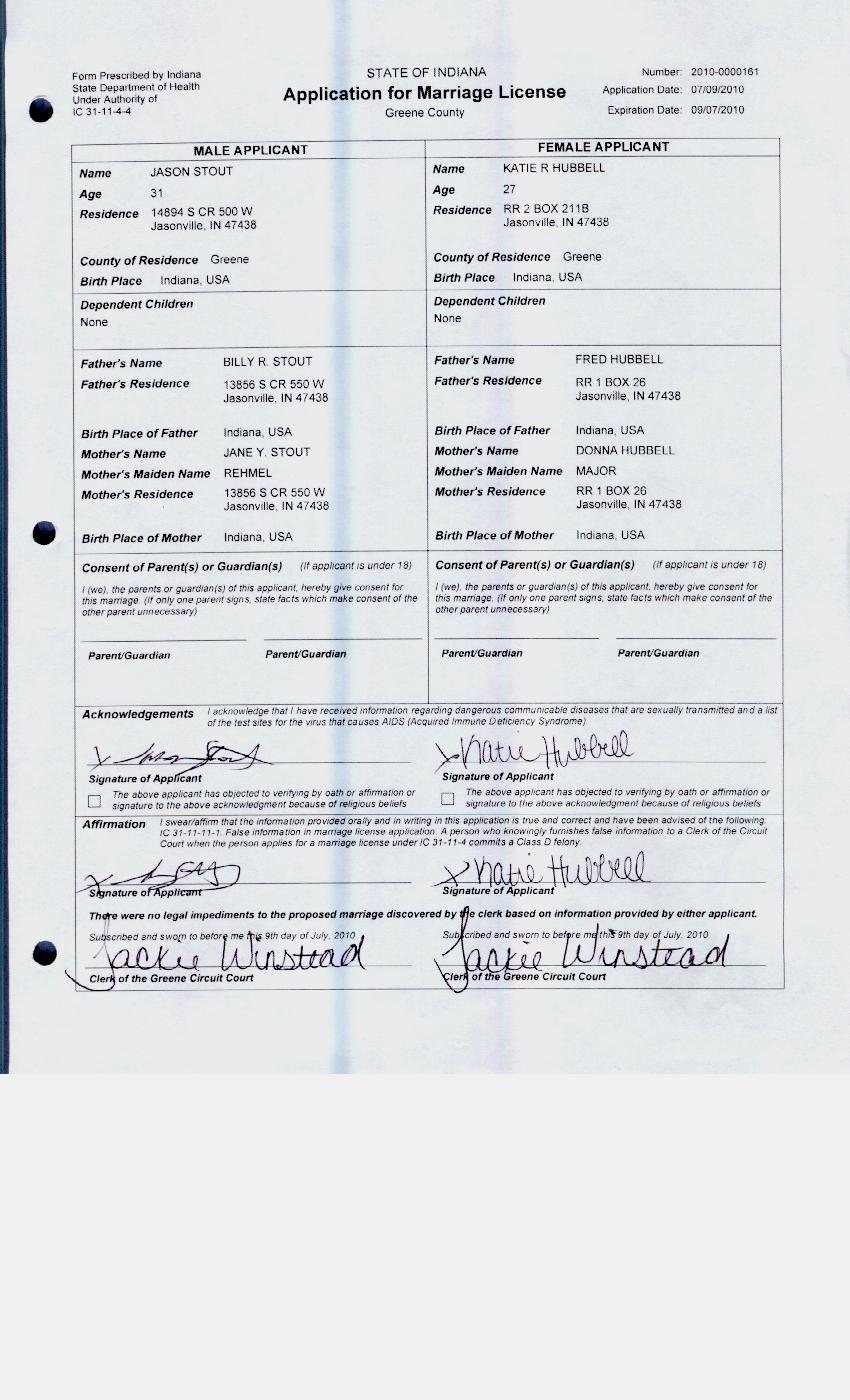 Form Prescribed by Indiana
State Department of Health
Under Authority of
IC 31-11-4-4
STATE OF INDIANA
Application for Marriage License
Greene County
Number: 2010-0000161
Application Date: 07/09/2010
Expiration Date: 09/07/2010
MALE APPLICANT
Name JASON STOUT
Age 31
Residence 14894 S CR 500 W
Jasonville, IN 47438
County of Residence Greene
Birth Place Indiana, USA
Dependent Children
None
Father's Name BILLY R. STOUT
Father's Residence 13856 S CR 550 W
Jasonville, IN 47438
Birth Place of Father Indiana, USA
Mother's Name JANE Y. STOUT
Mother's Maiden Name REHMEL
Mother's Residence 13856 S CR 550 W
Jasonville, IN 47438
Birth Place of Mother Indiana, USA
Consent of Parent(s) or Guardian(s) (If applicant is under 18)
I (we), the parents or guardian(s) of this applicant, hereby give consent for
this marriage. (If only one parent signs, state facts which make consent of the
other parent unnecessary)
Parent/Guardian Parent/Guardian
FEMALE APPLICANT
Name KATIE R HUBBELL
Age 27
Residence RR 2 BOX 211B
Jasonville, IN 47438
County of Residence Greene
Birth Place Indiana, USA
Dependent Children
None
Father's Name FRED HUBBELL
Father's Residence RR 1 BOX 26
Jasonville, IN 47438
Birth Place of Father Indiana, USA
Mother's Name DONNA HUBBELL
Mother's Maiden Name MAJOR
Mother's Residence RR 1 BOX 26
Jasonville, IN 47438
Birth Place of Mother Indiana, USA
Consent of Parent(s) or Guardian(s) (If applicant is under 18)
I (we), the parents or guardian(s) of this applicant, hereby give consent for
this marriage. (If only one parent signs, state facts which make consent of the
other parent unnecessary)
Parent/Guardian Parent/Guardian
Acknowledgements I acknowledge that I have received information regarding dangerous communicable diseases that are sexually transmitted and a list
of the test sites for the virus that causes AIDS (Acquired Immune Deficiency Syndrome).
x Jason Stout
Signature of Applicant
The above applicant has objected to verifying by oath or affirmation or
signature to the above acknowledgment because of religious beliefs
x Katie Hubbell
Signature of Applicant
The above applicant has objected to verifying by oath or affirmation or
signature to the above acknowledgment because of religious beliefs
Affirmation I swear/affirm that the information provided orally and in writing in this application is true and correct and have been advised of the following:
IC 31-11-11-1. False information in marriage license application. A person who knowingly furnishes false information to a Clerk of the Circuit
Court when the person applies for a marriage license under IC 31-11-4 commits a Class D felony.
x
Signature of Applicant
x Katie Hubbell
Signature of Applicant
There were no legal impediments to the proposed marriage discovered by the clerk based on information provided by either applicant.
Subscribed and sworn to before me this 9th day of July, 2010
Jackie Winstead
Clerk of the Greene Circuit Court
Subscribed and sworn to before me this 9th day of July, 2010
Jackie Winstead
Clerk of the Greene Circuit Court